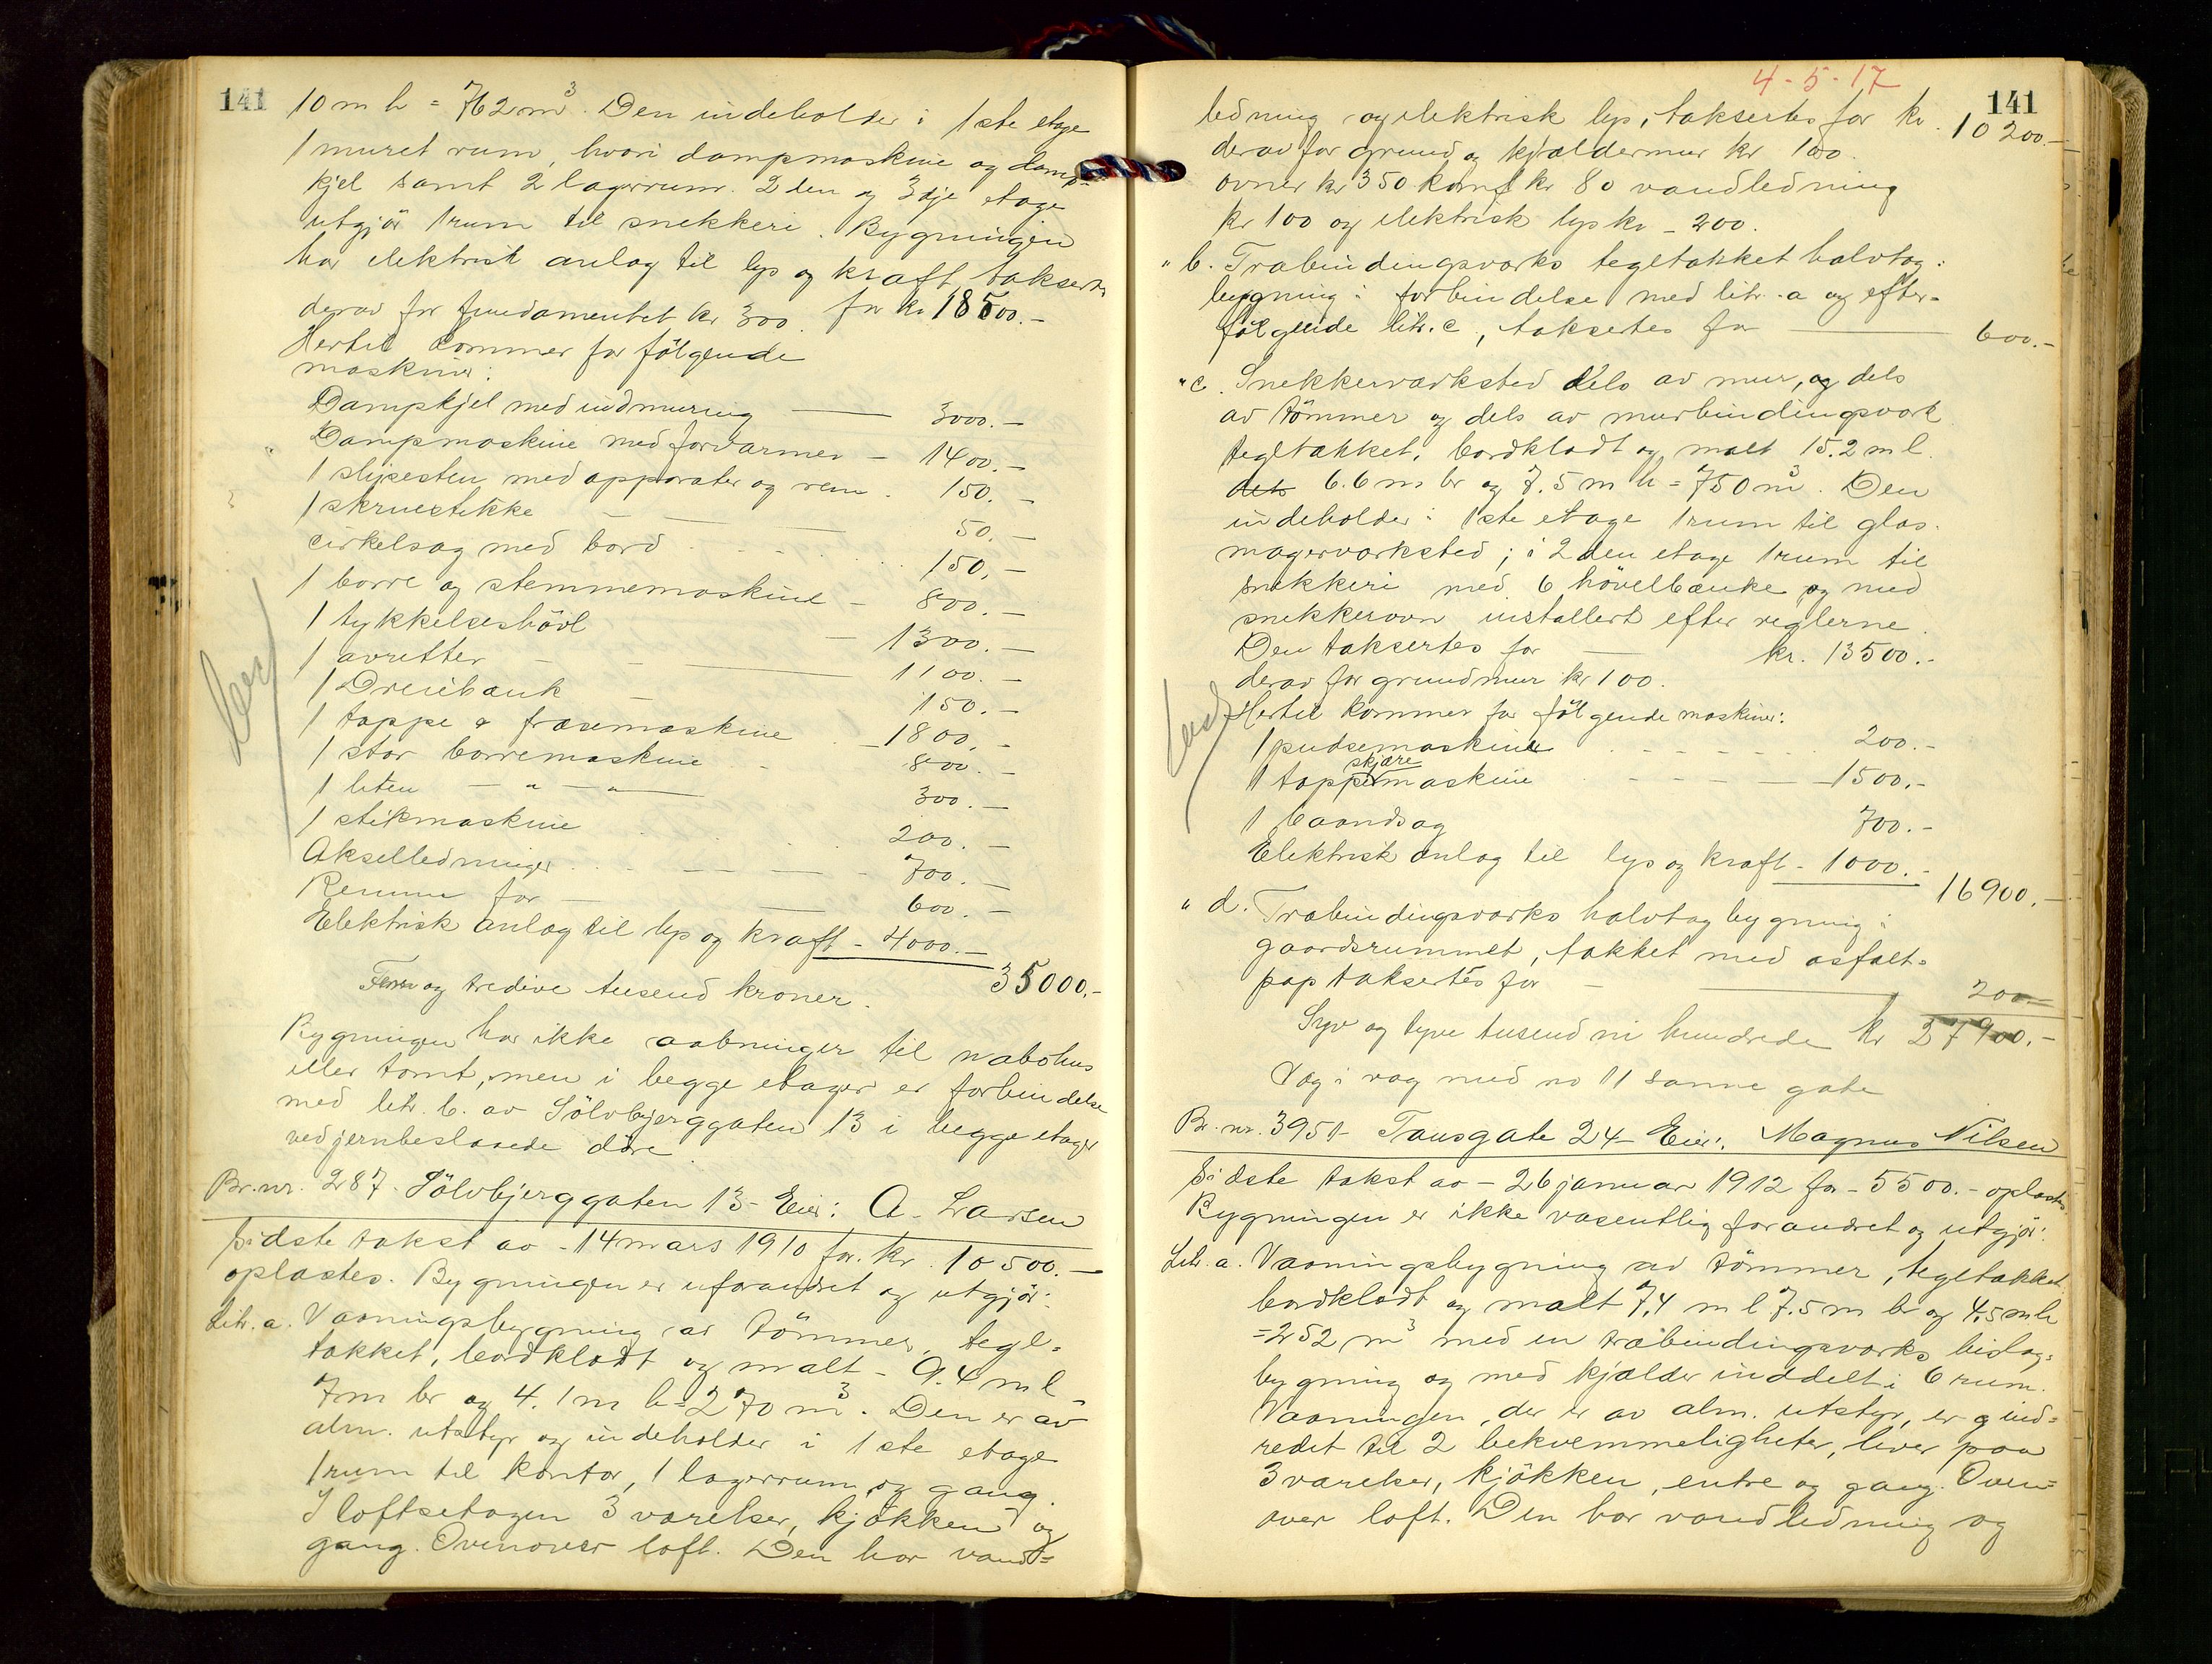 141
10 m h = 762 m³. Den indeholder i 1ste etage
1 muret rum, hvori dampmaskine og damp-
kjel samt 2 lagerrum. 2den og 3dje etage
utgjör 1 rum til snekkeri. Bygningen
har elektrisk anlæg til lys og kraft, takseres
for kr 18500.-
derav for fundamentet kr 300.
Hertil kommer for følgende
maskiner:
Dampkjel med indmuring — 3000.-
Dampmaskine med forvarmer - 1400.-
1 slipesten med apparater og rem . 150.-
1 skruestikke — 50.-
cirkelsag med bord . . . . 150.-
1 borre og stemmemaskine - 800.-
1 tykkelseshövl - 1300.-
1 avretter - - — 1100.-
1 Dreiebænk - 150.-
1 tappe & fræsemaskine - 1800.-
1 stor borremaskine - 800.-
1 liten - " - " — 300.-
1 stikmaskine . . 200.-
Akselledninger . . - - - - 700.-
Remmer for — — 600.-
Elektrisk anlæg til lys og kraft - 4000.-
35000.-
Fem og tredive tusend kroner.
Bygningen har ikke aabninger til nabohus
eller tomt, men i begge etager er forbindelse
med litr. b. av Sölvbjerggaten 13 i begge etager
ved jernbeslaaede döre.
Br. nr. 287. Sölvbjerggaten 13 - Eier: A. Larsen
Sidste takst av - 14 mars 1910 for. kr. 10500.-
oplæstes. Bygningen er uforandret og utgjör:
Litr. a. Vaaningsbygning av tömmer, tegl-
tækket, bordklædt og malt - 9.4 m l
7 m br og 4.1 m h = 270 m³. Den er av
alm. utstyr og indeholder i 1ste etage
1 rum til kontor, 1 lagerrum og gang.
I loftsetagen 3 værelser, kjökken og
gang. Ovenover loft. Den har vand-
4-5-17
141
ledning og elektrisk lys, taksertes for kr. 10200.-
derav for grund og kjældermur kr 100.
ovner kr 350 komf kr 80 vandledning
kr 100 og elektrisk lys kr - 200.
" b. Træbindingsverks tegltækket halvtag-
bygning i forbindelse med litr. a og efter-
fölgende litr. c, taksertes for — 600.-
" c. Snekkerværksted dels av mur, og dels
av tömmer og dels av murbindingsverk
tegltækket, bordklædt og malt 15.2 m l
dets 6.6 m br og 7.5 m h = 750 m³. Den
indeholder i 1ste etage 1 rum til glas-
magerværksted; i 2den etage 1 rum til
snekkeri med 6 hövelbænke og med
snekkerovn installert efter reglerne.
Den taksertes for — kr. 13500.-
derav for grundmur kr 100.
Hertil kommer for fölgende maskiner:
1 pudsemaskine . - - - - - 200.-
skjære
1 tappemaskine . - - - - 1500.-
1 baandsag 700.-
Elektrisk anlæg til lys og kraft - 1000.-
16900.-
" d. Træbindingsverks halvtagbygning i
gaardsrummet, tækket med asfalt-
pap taksertes for - — 200.-
Syv og tyve tusend ni hundrede kr 27900.-
Væg i væg med no 11 samme gate
Br. nr. 3951 - Tausgate 24 - Eier: Magnus Nilsen
Sidste takst av - 26 januar 1912 for - 5500.- oplæstes
Bygningen er ikke væsentlig forandret og utgjör:
Litr. a. Vaaningsbygning av tömmer, tegltækket
bordklædt og malt 7.4 m l 7.5 m br og 4.5 m h
= 252 m³ med en træbindingsverks bislag-
bygning og med kjælder inddelt i 6 rum.
Vaaningen, der er av alm. utstyr, er ind-
redet til 2 bekvemmeligheter, hver paa
3 værelser, kjökken, entre og gang. Oven-
over loft. Den har vandledning og